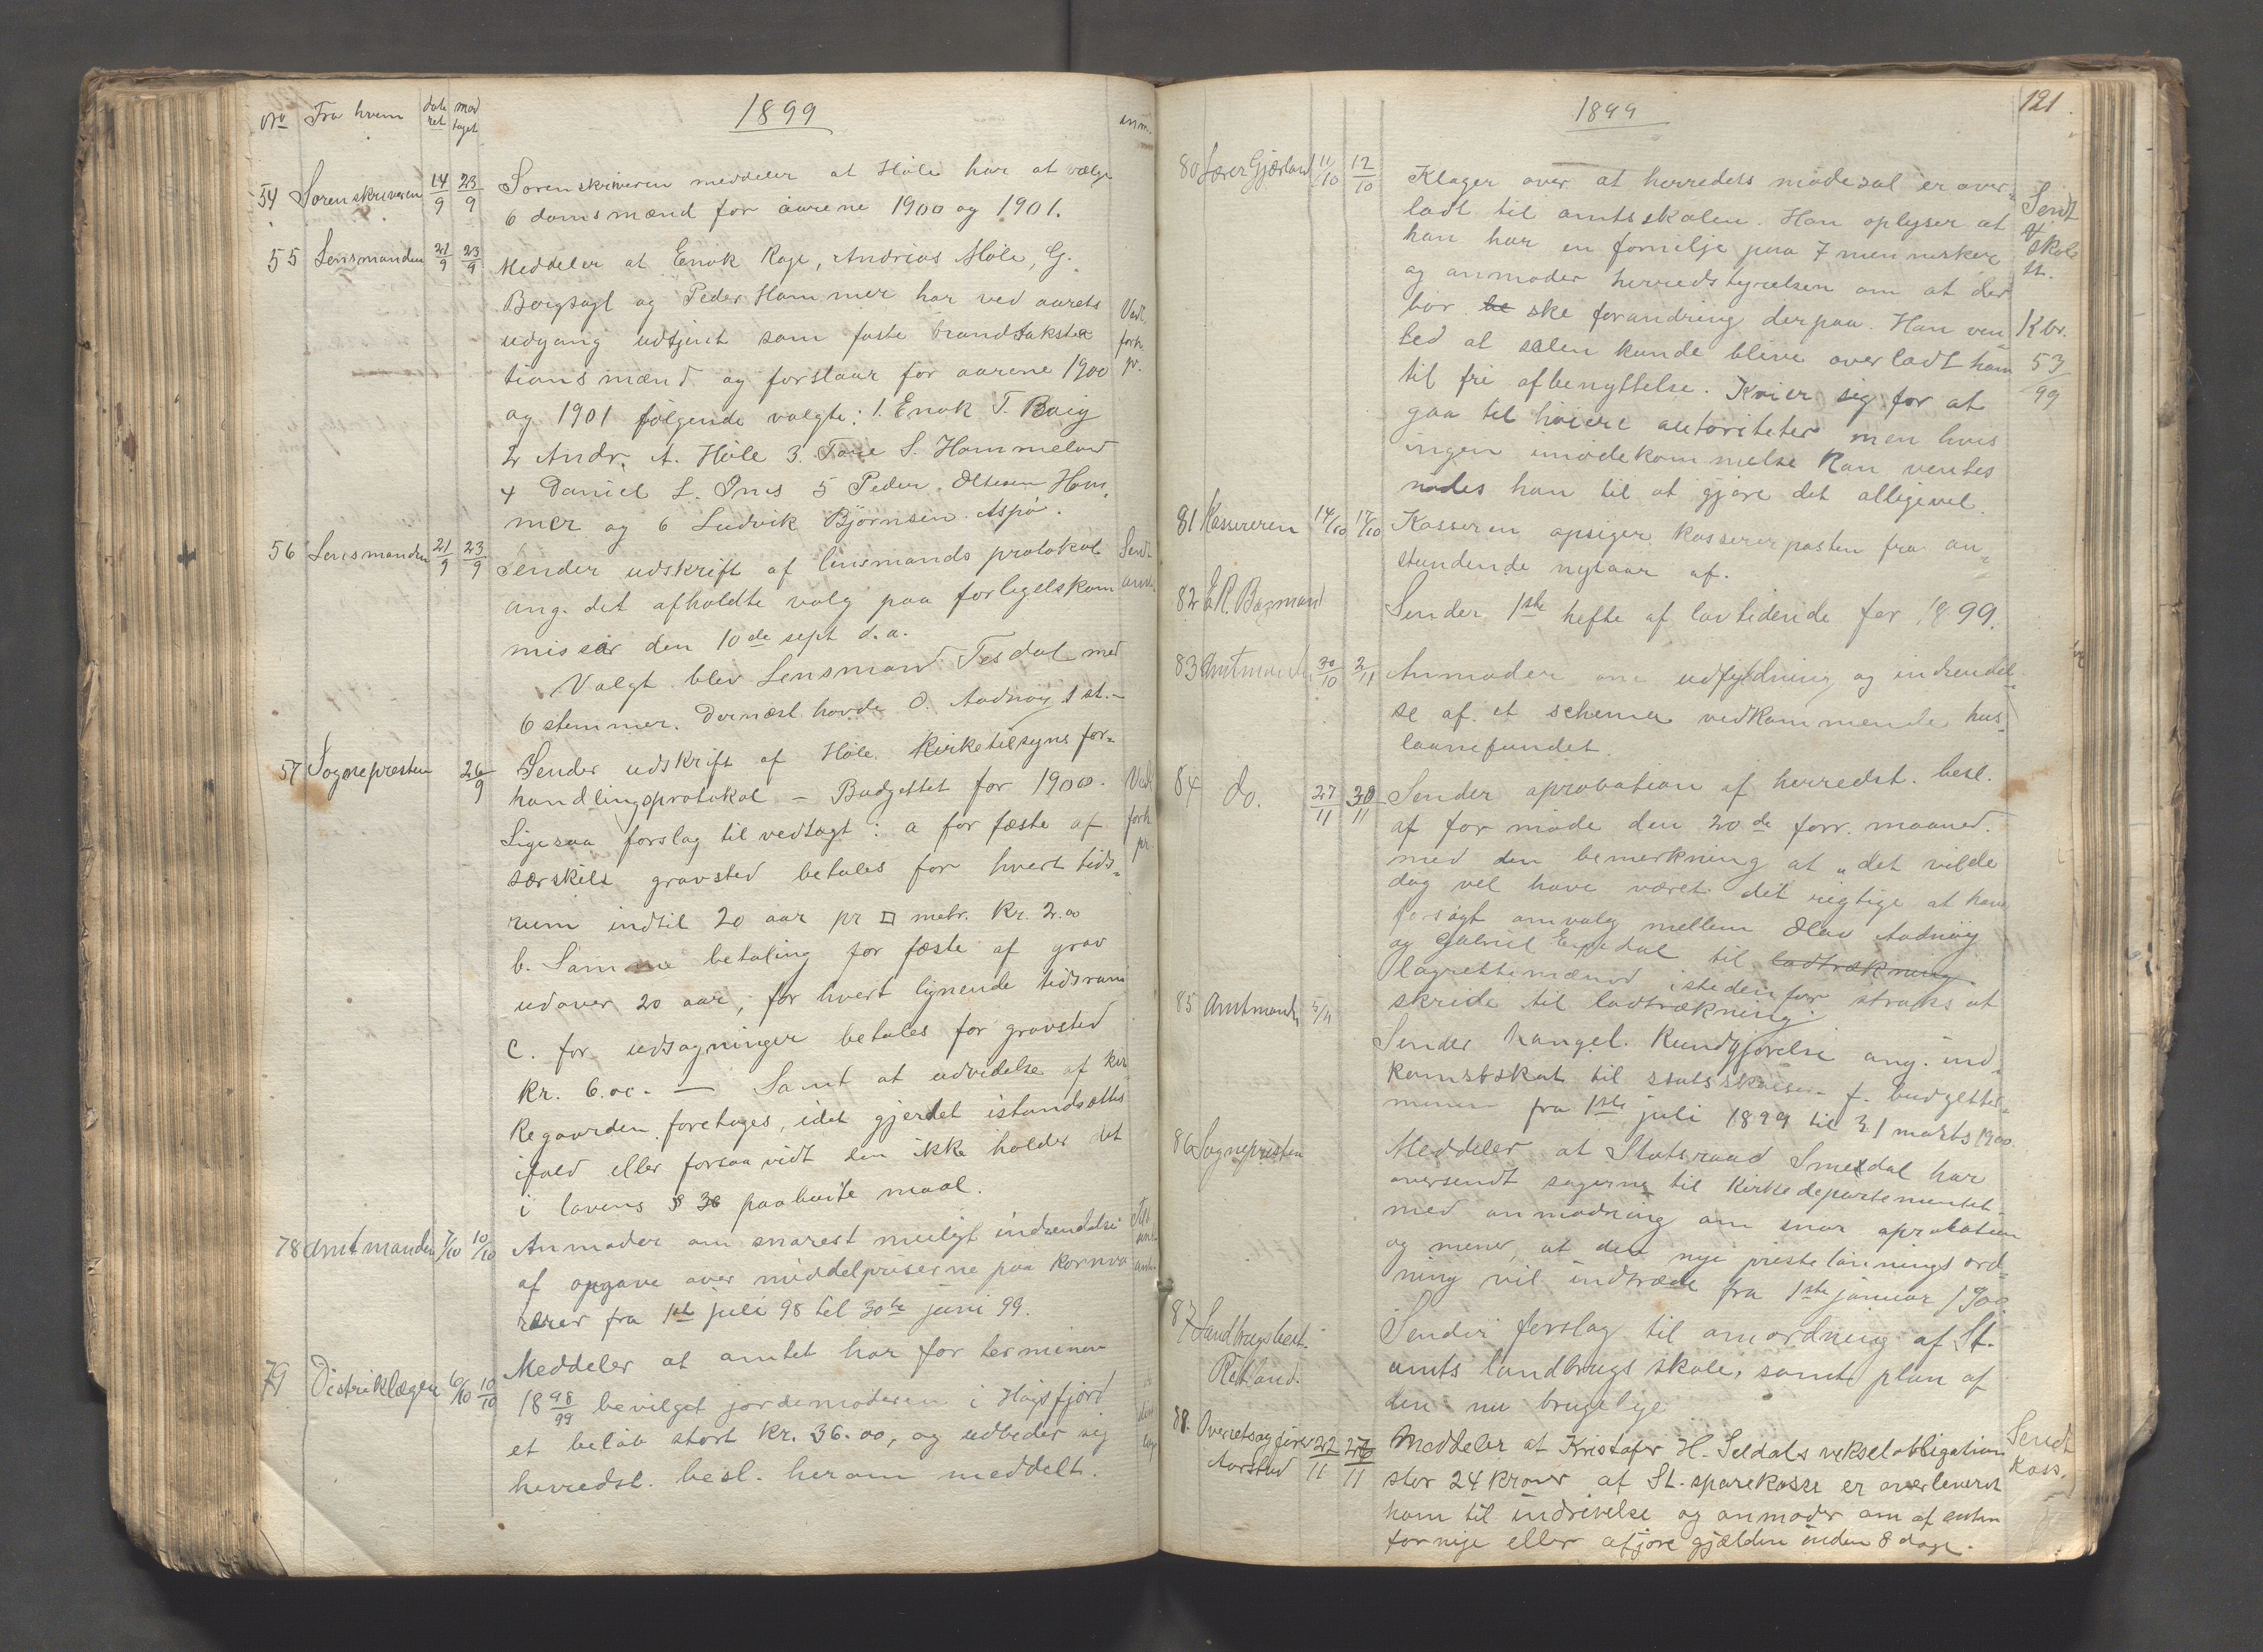 No Fra hvem date ret mod taget 1899 anm.
54 Sorenskriveren 14/9 23/9 Sorenskriveren meddeler at Höle har at vælge
6 domsmænd for aarene 1900 og 1901.
55 Lensmanden 21/9 23/9 Meddeler at Enok Rage, Andreas Höle, G.
Bergsagl og Peder Hammer har ved aarets
udgang udtjent som faste brandtaksta
tionsmænd og forslaar for aarene 1900
og 1901 følgende valgte: 1. Enok T. Boig
2 Andr. A. Höle 3. Tore S. Hommeland
4 Daniel L. Ims 5 Peder Oltesen Ham,
mer og 6 Ludvik Björnsen Aspö.
Vedt.
forh
pr.
56 Lensmanden 21/9 23/9 Sender udskrift af lensmands protokol
ang. det afholdte valg paa forligelskom
missær den 10de sept d.a.
Valgt blev Lensmand Tesdal med
6 stemmer. Dernæst havde O. Aadnöy 1 st.-
Sendt
amtm.
57 Sognepresten 26/9 Sender udskrift af Höle Kirketilsyns for-
handlingsprotokol - Budgettet for 1900.
Ligesaa forslag til vedtægt: a for fæste af
særskilt gravsted betales for hvert tids-
rum indtil 20 aar pr □ metr. Kr. 2.00
b. Samme betaling for fæste af grav
udover 20 aar, for hvert lignende tidsrum
c. for udsagninger betales for gravsted
Kr. 6.00. - Samt at udvidelse af kir-
kegaarden foretages, idet gjerdet istandsættes
ifald eller forsaavidt den ikke holder det
i lovens § 38 paabudte maal.
Vedt
forh
pr.
78 Amtmanden 7/10 10/10 Anmoder om snarest muligt indsendelse
af opgave over middelpriserne paa kornva
rer fra 1ste juli 98 til 30te juni 99.
79 Distriktlægen 6/10 10/10 Meddeler at amtet har for terminen
18 98/99 bevilget jordemoderen i Högsfjord
et beløb stort Kr. 36.00, og udbeder sig
herredst. besl. herom meddelt.
1899 121
80 Lærer Gjærland 11/10 12/10 Klager over at herredets mødesal er over-
ladt til amtsskolen. Han oplyser at
han har en familje paa 7 mennesker
og anmoder herredstyrelsen om at der
bör be ske forandring derpaa. Han ven
ted at salen kunde blive overladt ham
til fri afbenyttelse. Kvier sig for at
gaa til höiere autoriteter men hvis
ingen imödekommelse kan ventes
nødes han til at gjøre det alligevel.
Sendt
skole
st.
Kbr.
53
99
81 Kassereren 14/10 17/10 Kasseren opsiger kassererposten fra an-
stundende nytaar af.
82 E.R. Bazmand Sender 1ste hefte af lovtidende for 1899.
83 Amtmanden 30/10 2/11 Anmoder om udfyldning og indsendel-
se af et schema vedkommende hus-
laanefondet.
84 do. 27/11 30/11 Sender aprobation af herredst. besl.
af for møde den 20de forr. maaned.
med den bemerkning at „det vilde
dog vel have været det rigtige at have
forsøgt omvalg mellem Olav Aadnöy
og Gabriel Espedal til lodtrækning
lagrettemænd istedenfor straks at
skride til lodtrækning.
85 Amtmanden 5/11 Sender kongel. Kundgjørelse ang. ind-
komstskat til statskassen f. budgetter-
minen fra 1ste juli 1899 til 31 marts 1900.
86 Sognepresten Meddeler at Statsraad Smedal har
oversendt sagerne til Kirkedepartementet-
med anmodning om snar aprobation
og mener, at den nye prestelønnings ord-
ning vil indtræde fra 1ste januar 1900.
87 Landbrugsbest. Retland. Sender forslag til omordning af St.
amts landbrugs skole, samt plan af
den nu brugelige
88. Overretssagfører Aarstad 22/11 27/11 Meddeler at Kristofer H. Seldals vekselobligation
stor 24 kroner at St. sparekasse er overleveret
ham til indrivelse og anmoder om at enten
fornye eller afgjøre gjælden inden 8 dage.
Sendt
Kass.